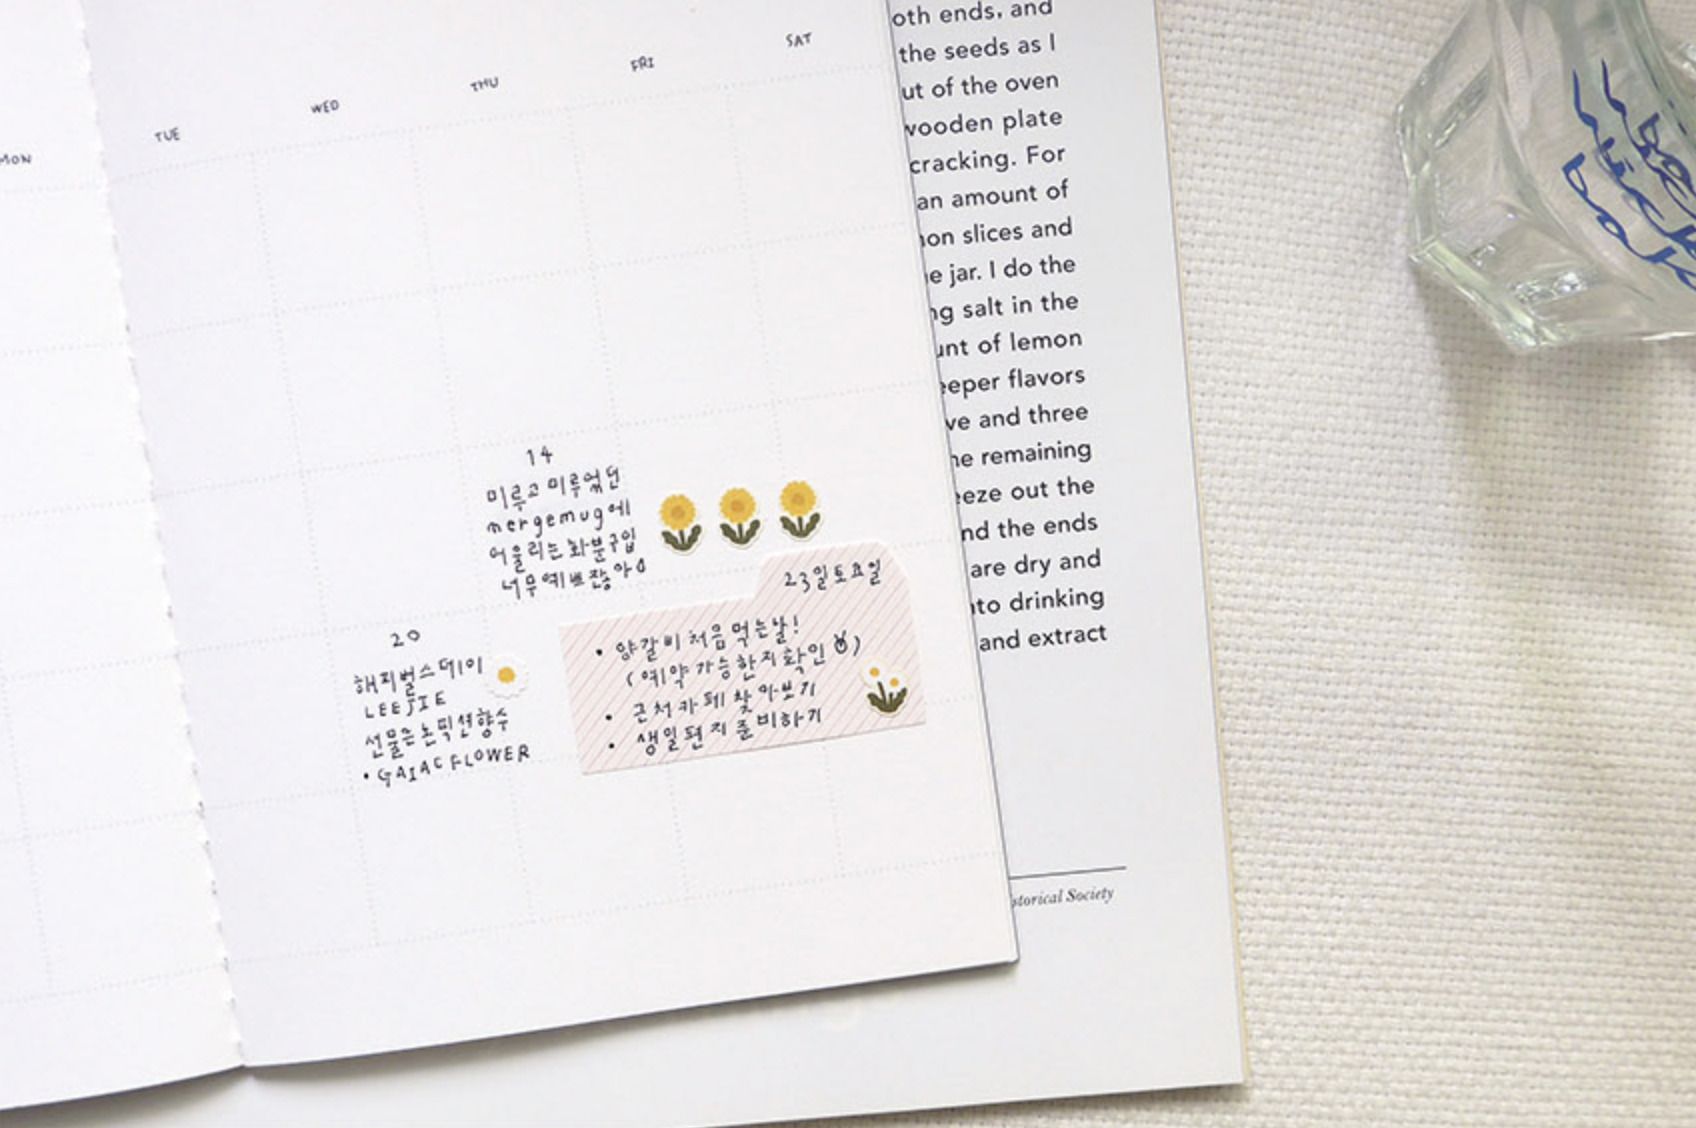 MON
TUE
WED
THU
FRI
SAT
14
미루고 미루었던
mergemug에
어울리는 화분구입
너무예쁘잖아
20
해피벌스데이
LEEJIE
선물은논픽션향수
• GAIAC FLOWER
23일토요일
• 양갈비처음먹는날!
(예약가능한지확인)
• 근처카페찾아보기
• 생일편지준비하기
oth ends, and
the seeds as I
ut of the oven
wooden plate
cracking. For
an amount of
on slices and
e jar. I do the
ng salt in the
unt of lemon
eeper flavors
ve and three
he remaining
eeze out the
nd the ends
are dry and
nto drinking
and extract
storical Society